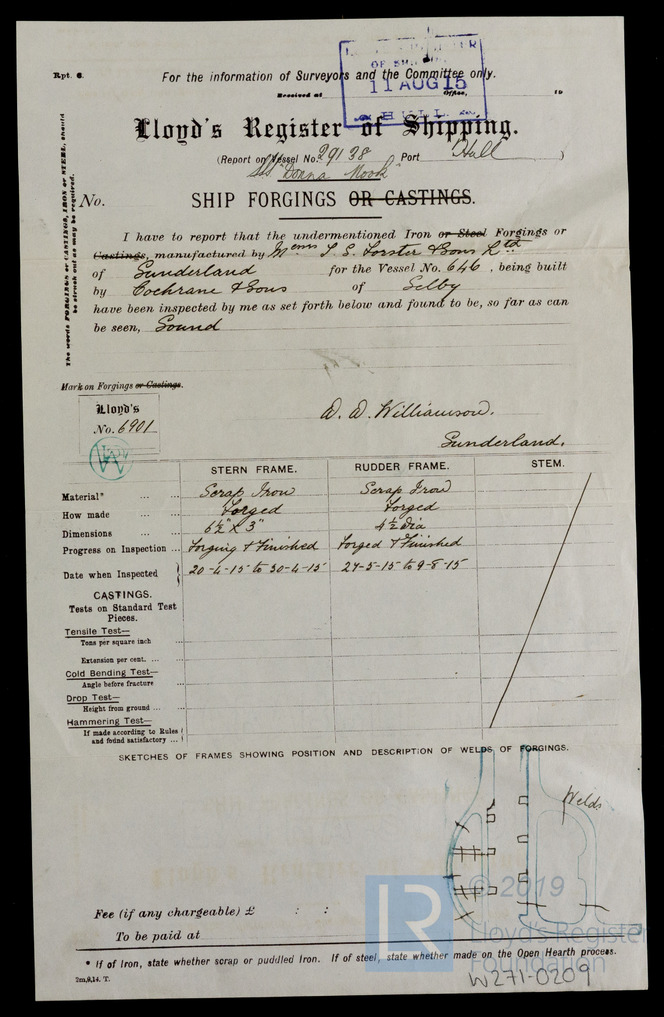 Rpt. 6.
For the information of Surveyors and the Committee only.
LLOYD'S REGISTER
OF SHIPPING
11 AUG 15
HULL
Received at Office, 19
Lloyd's Register of Shipping.
(Report on Vessel No. 29138 Port Hull )
SS "Donna Nook"
No. SHIP FORGINGS OR CASTINGS.
The words FORGINGS or CASTINGS, IRON or STEEL, should
be struck out as may be required.
I have to report that the undermentioned Iron or Steel Forgings or
Castings, manufactured by Messrs T. S. Forster & Sons Ltd
of Sunderland for the Vessel No. 646, being built
by Cochrane & Sons of Selby
have been inspected by me as set forth below and found to be, so far as can
be seen, Sound
Mark on Forgings or Castings.
Lloyd's
No. 6901
A. D. Williamson.
Sunderland.
STERN FRAME. RUDDER FRAME. STEM.
Material* ... ... Scrap Iron Scrap Iron
How made ... ... Forged Forged
Dimensions ... ... 6½" x 3" 4½ dia
Progress on Inspection ... Forging & Finished Forged & Finished
Date when Inspected 20-4-15 to 30-4-15 27-5-15 to 9-8-15
CASTINGS.
Tests on Standard Test
Pieces.
Tensile Test—
Tons per square inch ...
Extension per cent. ... ...
Cold Bending Test—
Angle before fracture ...
Drop Test—
Height from ground ... ...
Hammering Test—
If made according to Rules
and found satisfactory ...
SKETCHES OF FRAMES SHOWING POSITION AND DESCRIPTION OF WELDS OF FORGINGS.
Welds
Fee (if any chargeable) £ : :
To be paid at
* If of Iron, state whether scrap or puddled Iron. If of steel, state whether made on the Open Hearth process.
2m,9,14. T.
LR
© 2019
Lloyd's Register
Foundation
W271-0209